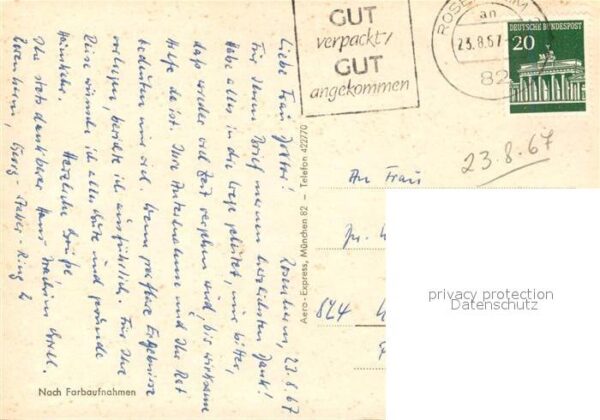 GUT
verpackt,
GUT
angekommen
ROSENHEIM
an
23.8.67
82
DEUTSCHE BUNDESPOST
20
23.8.67
An Frau
824
Aero-Express, München 82 — Telefon 422770
Rosenheim, 23.8.67
Liebe Frau
Für Ihren Brief meinen herzlichsten Dank!
Habe alles in die Wege geleitet, nur leider,
daß wieder viel Zeit vergehen wird, bis wirksame
Hilfe da ist. Ihre Anteilnahme und Ihr Rat
bedeuten mir viel. Wenn greifbare Ergebnisse
vorliegen, berichte ich ausführlich. Für Ihre
Reise wünsche ich alles Gute und gesunde
Heimkehr. Herzliche Grüße
Ihr stets dankbarer Hans Joachim
Rosenheim, Georg-Staber-Ring 2
Nach Farbaufnahmen
privacy protection
Datenschutz